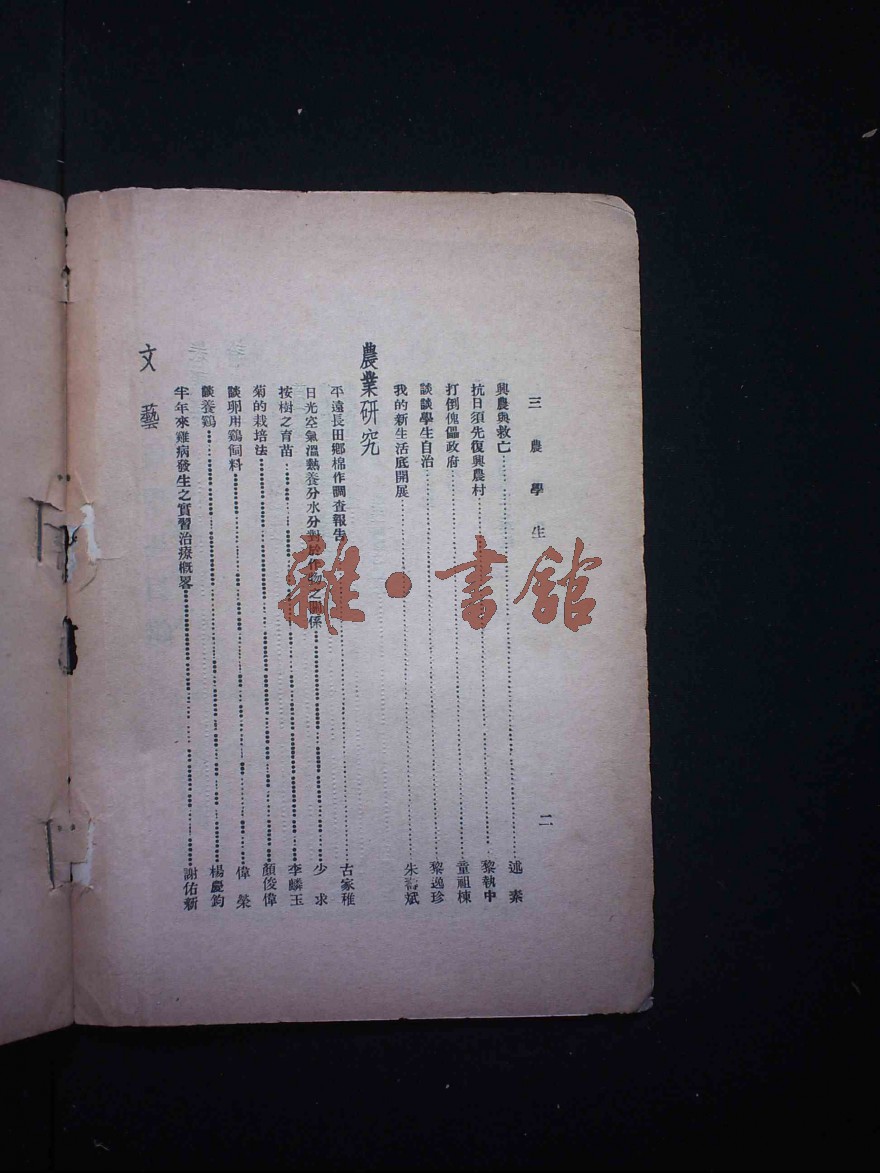 三農學生 二
興農與救亡……述素
抗日須先復興農村……黎執中
打倒傀儡政府……童祖棟
談談學生自治……黎逸珍
我的新生活底開展……朱壽斌
農業研究
平遠長田鄉棉作調查報告……古家稚
日光空氣溫熱養分水分對於作物之關係……少求
按樹之育苗……李麟玉
菊的栽培法……顏俊偉
談卵用鷄飼料……偉榮
談養鷄……楊慶鈞
半年來雞病發生之實習治療概畧……謝佑新
文藝
雜·書館